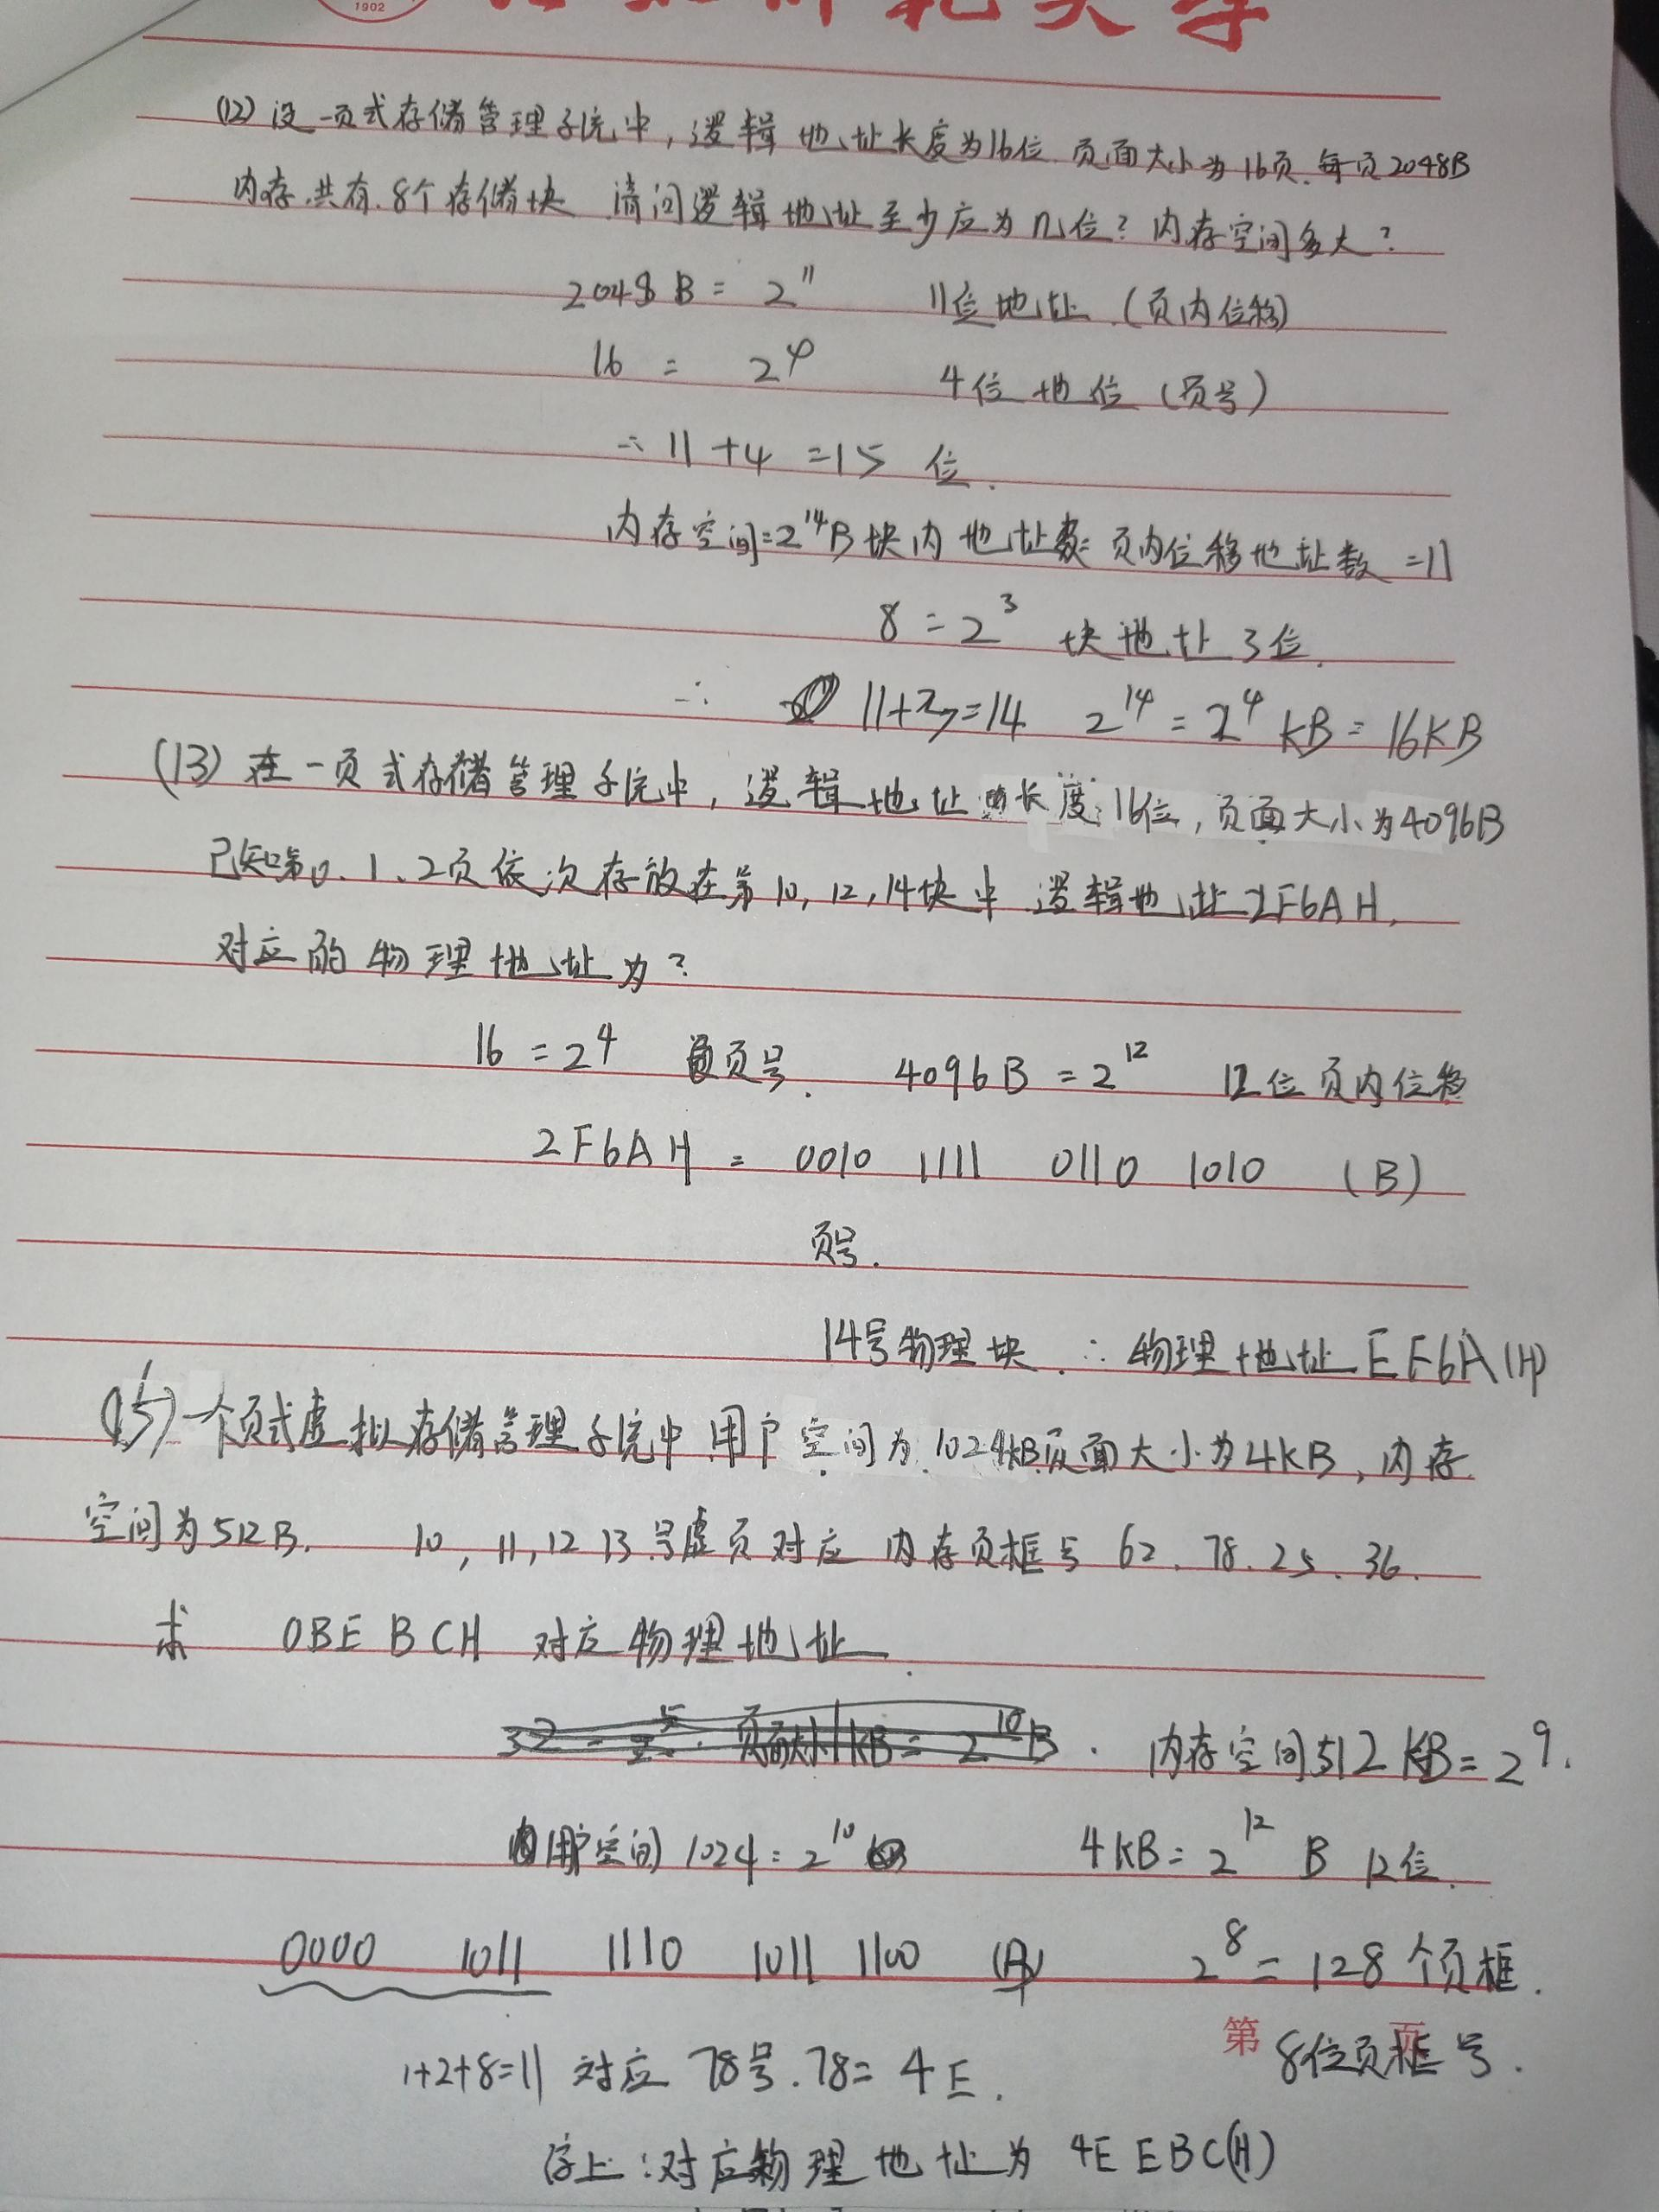 1902
师范大学
(12) 设一页式存储管理系统中，逻辑地址长度为16位.页面大小为16页.每页2048B
内存.共有.8个存储块 请问逻辑地址至少应为几位？内存空间多大？
2048B = 2^11 11位地址.(页内位移)
16 = 2^4 4位地位(页号)
∴ 11+4=15 位.
内存空间=2^14B 块内地址数=页内位移地址数=11
8=2^3 块地址3位.
∴ 11+3=14 2^14=2^4 KB=16KB
(13) 在一页式存储管理系统中，逻辑地址长度16位，页面大小为4096B
已知第0、1、2页依次存放在第10,12,14块中 逻辑地址2F6AH,
对应的物理地址为？
16=2^4 页号. 4096B=2^12 12位页内位移
2F6AH = 0010 1111 0110 1010 (B)
页号.
14号物理块.∴物理地址EF6A(H)
(15)一个页式虚拟存储管理系统中用户空间为1024KB页面大小为4KB，内存
空间为512B. 10,11,12 13号虚页对应内存页框号62.78.25.36.
求 0BEBCH 对应物理地址.
32=2^5. 页面大小1KB=2^10B. 内存空间512KB=2^9.
用户空间1024=2^10 4KB=2^12 B 12位.
0000 1011 1110 1011 1100 2^8=128个页框.
第 页
8位页框号.
1+2+8=11 对应 78号.78=4E.
综上:对应物理地址为 4EEBC(H)